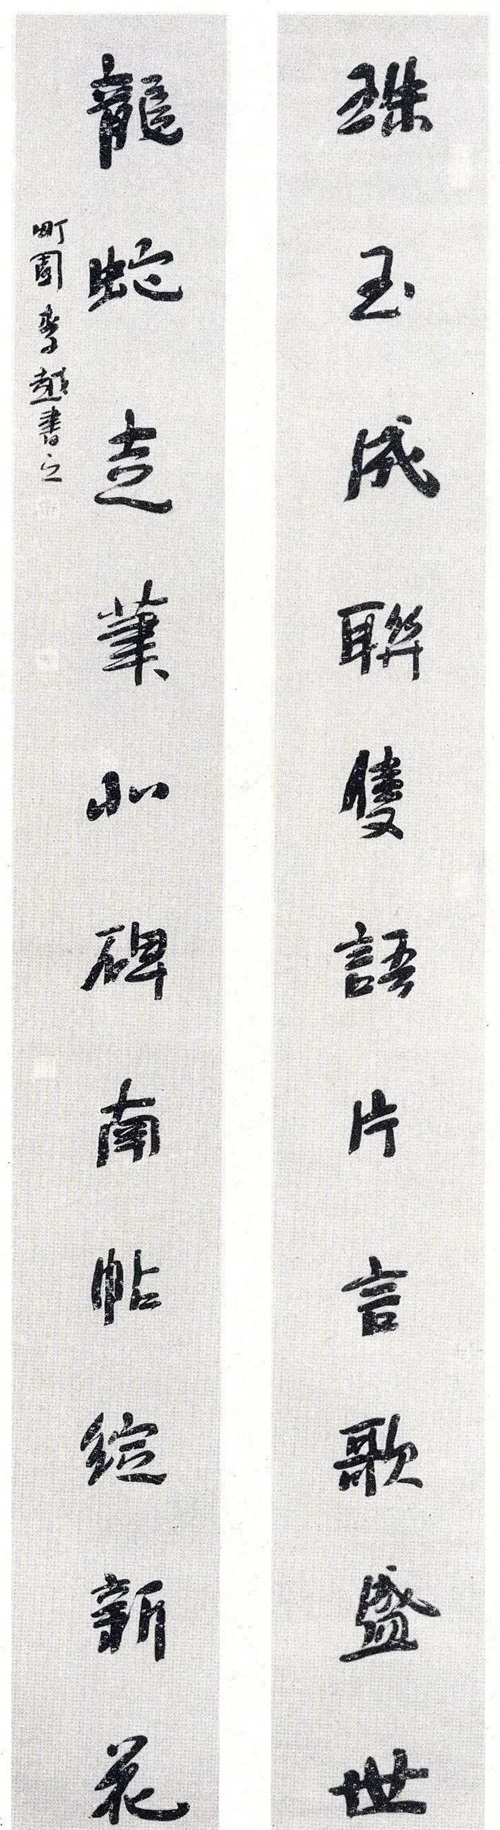 珠玉成聯隻語片言歌盛世
龍蛇走筆北碑南帖綻新花
町園李越書之